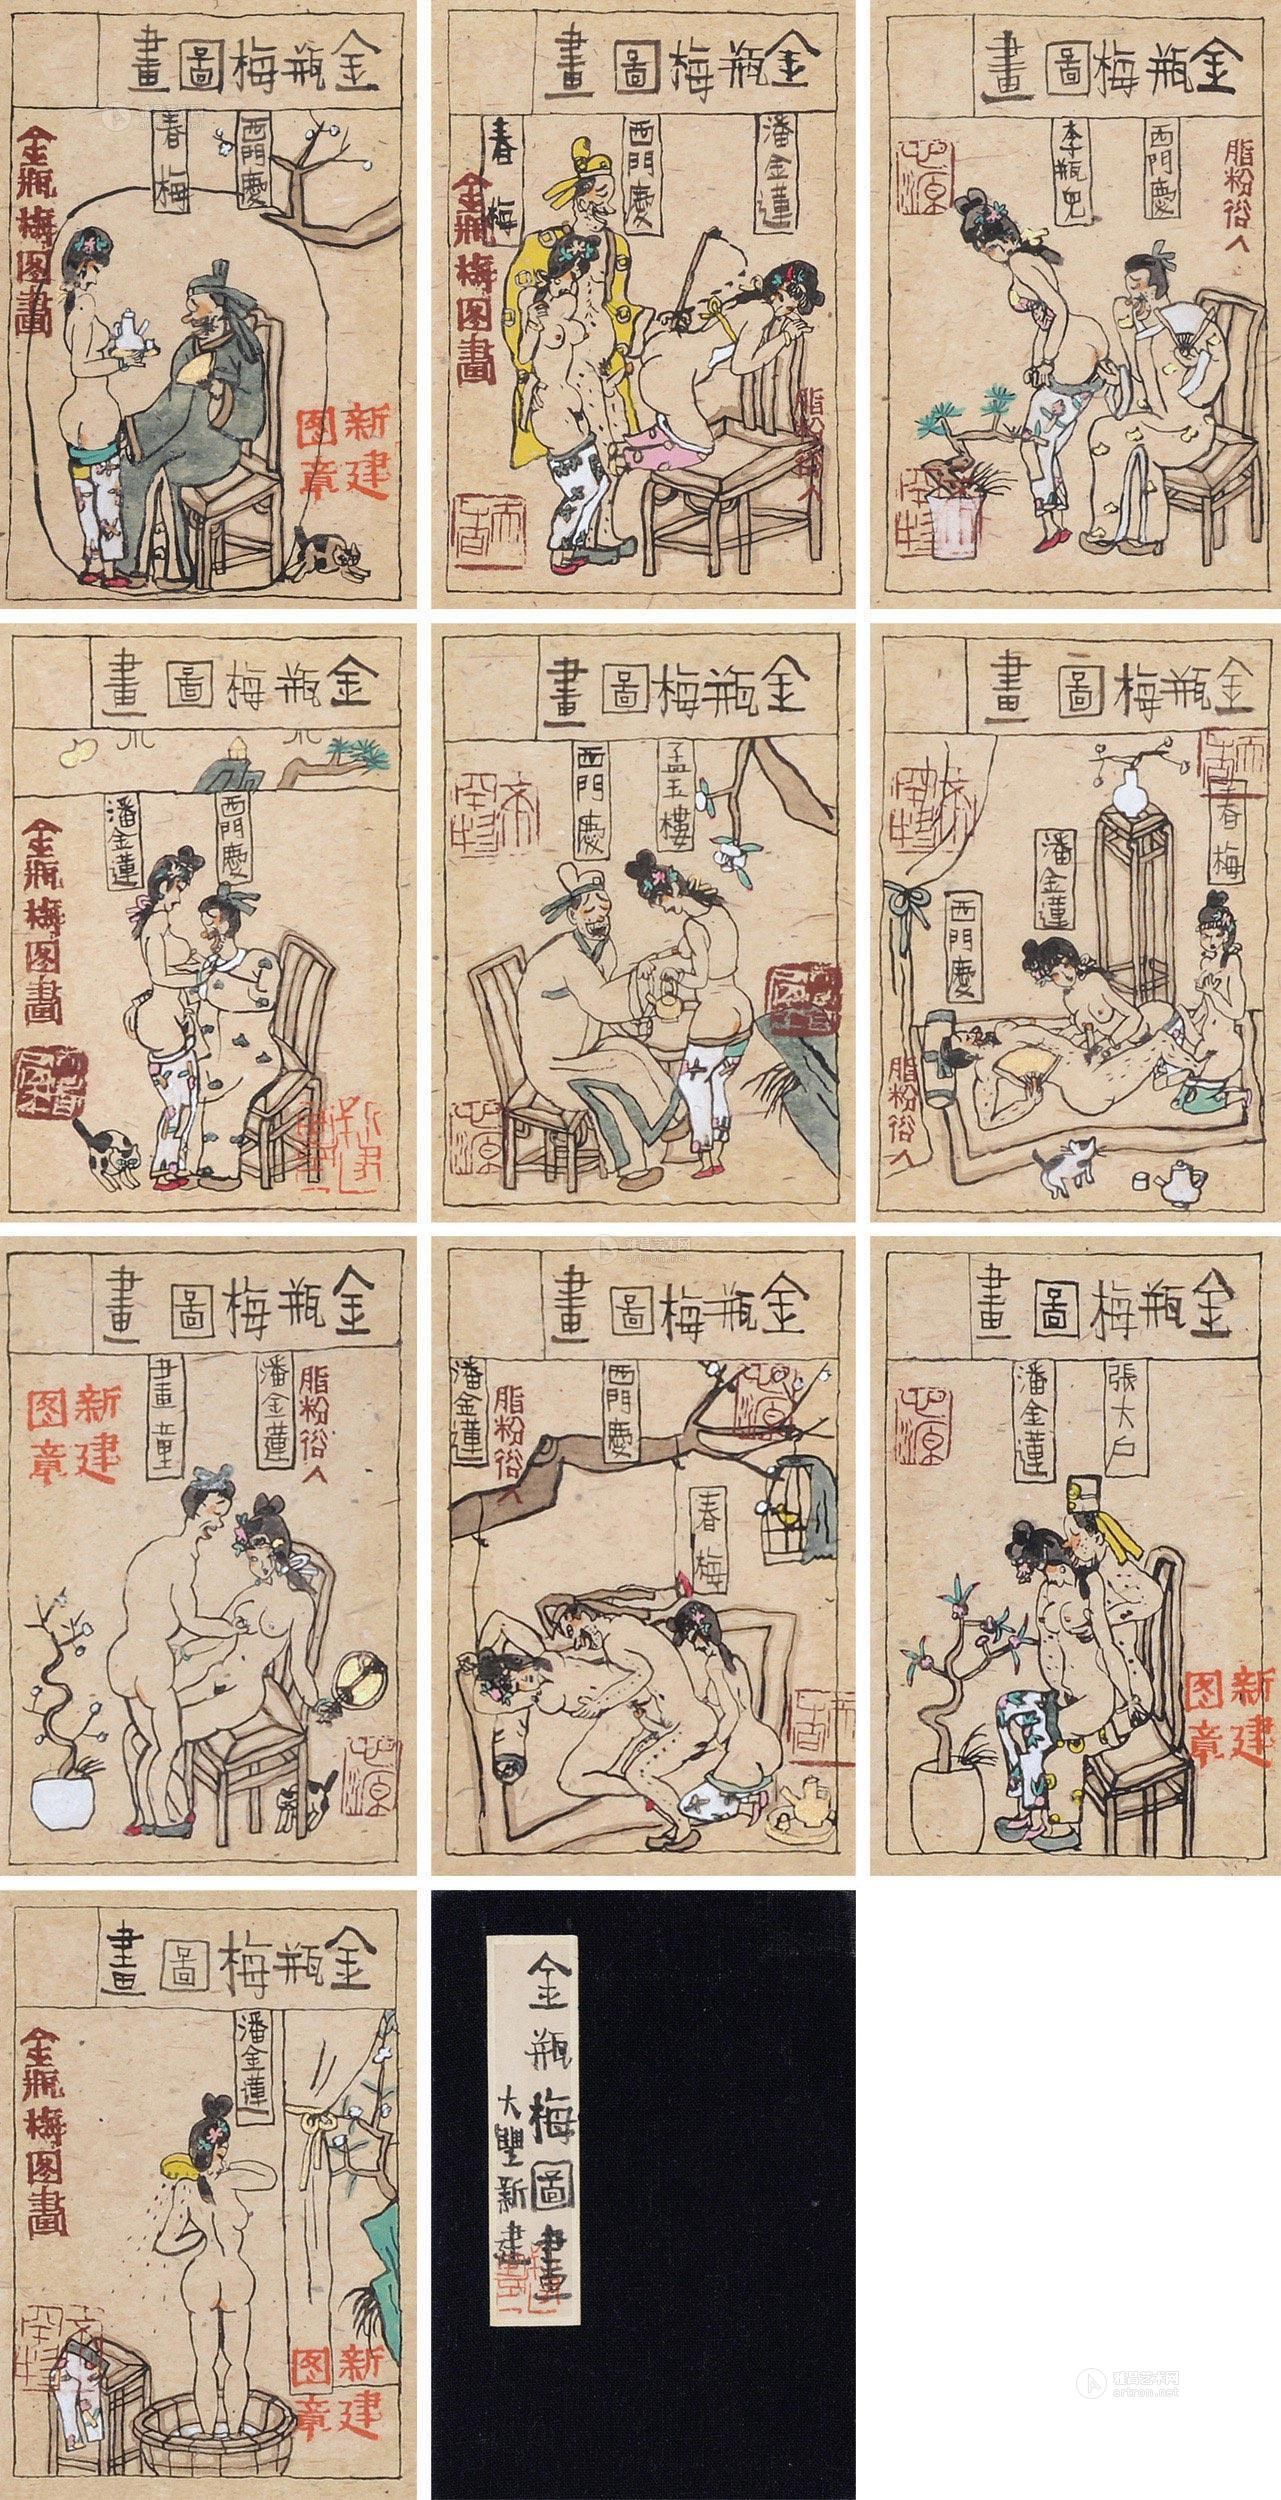 金瓶梅圖畫
西門慶
春梅
金瓶梅图畫
新建
图章
金瓶梅圖畫
潘金蓮
西門慶
春梅
金瓶梅图畫
脂粉俗人
金瓶梅圖畫
脂粉俗人
西門慶
李瓶兒
金瓶梅圖畫
西門慶
潘金蓮
金瓶梅图畫
金瓶梅圖畫
孟玉樓
西門慶
金瓶梅圖畫
春梅
潘金蓮
西門慶
脂粉俗人
金瓶梅圖畫
脂粉俗人
潘金蓮
畫童
新建
图章
金瓶梅圖畫
春梅
西門慶
脂粉俗人
潘金蓮
金瓶梅圖畫
張大户
潘金蓮
新建
图章
金瓶梅圖畫
潘金蓮
金瓶梅图畫
新建
图章
金瓶梅圖畫
大豐新建
雅昌艺术网
artron.net